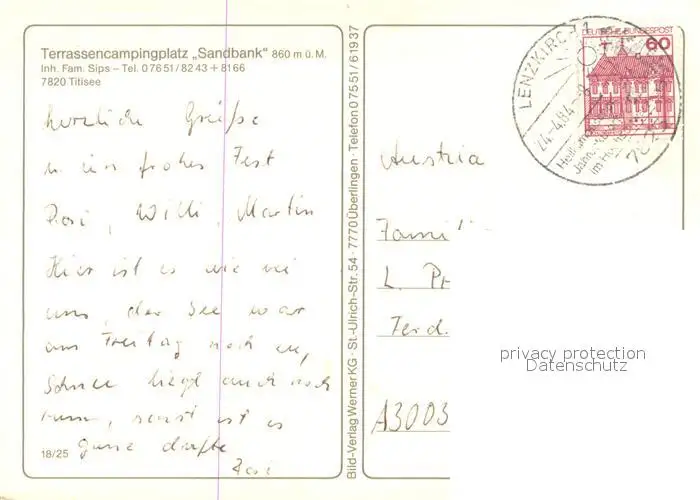 Terrassencampingplatz „Sandbank" 860 m ü. M.
Inh. Fam. Sips – Tel. 0 76 51 / 82 43 + 81 66
7820 Titisee
herzliche Grüße
u ein frohes Fest
Rosi, Willi, Martin
Hier ist es wie bei
uns, der See war
am Freitag noch zu,
Schnee liegt auch noch
rum, sonst ist es
ganz
Rosi
18/25
Bild-Verlag Werner KG · St.-Ulrich-Str. 54 · 7770 Überlingen · Telefon 0 75 51 / 6 19 37
LENZKIRCH 1
24.-4.84-8
DEUTSCHE BUNDESPOST
60
Austria
Fami
L. Pr
Ferd.
A3003
privacy protection
Datenschutz